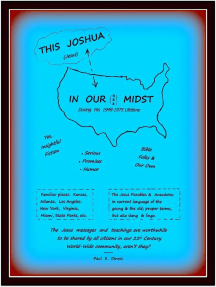 THIS JOSHUA
(Jesus)
IN OUR MIDST
During His 1948-1975 Lifetime
Yes,
Insightful
Fiction
• Serious
• Promises
• Humor
Bible
Folks &
Our Own
Familiar places: Kansas,
Atlanta, Los Angeles,
New York, Virginia,
Miami, State Ponds, etc.
The Jesus Parables & Anecdotes
in current language of the
going & the old, proper terms,
but also slang & lingo.
The Jesus messages and teachings are worthwhile
to be shared by all citizens in our 21st Century
World-Wide community, aren't they?
Paul R.